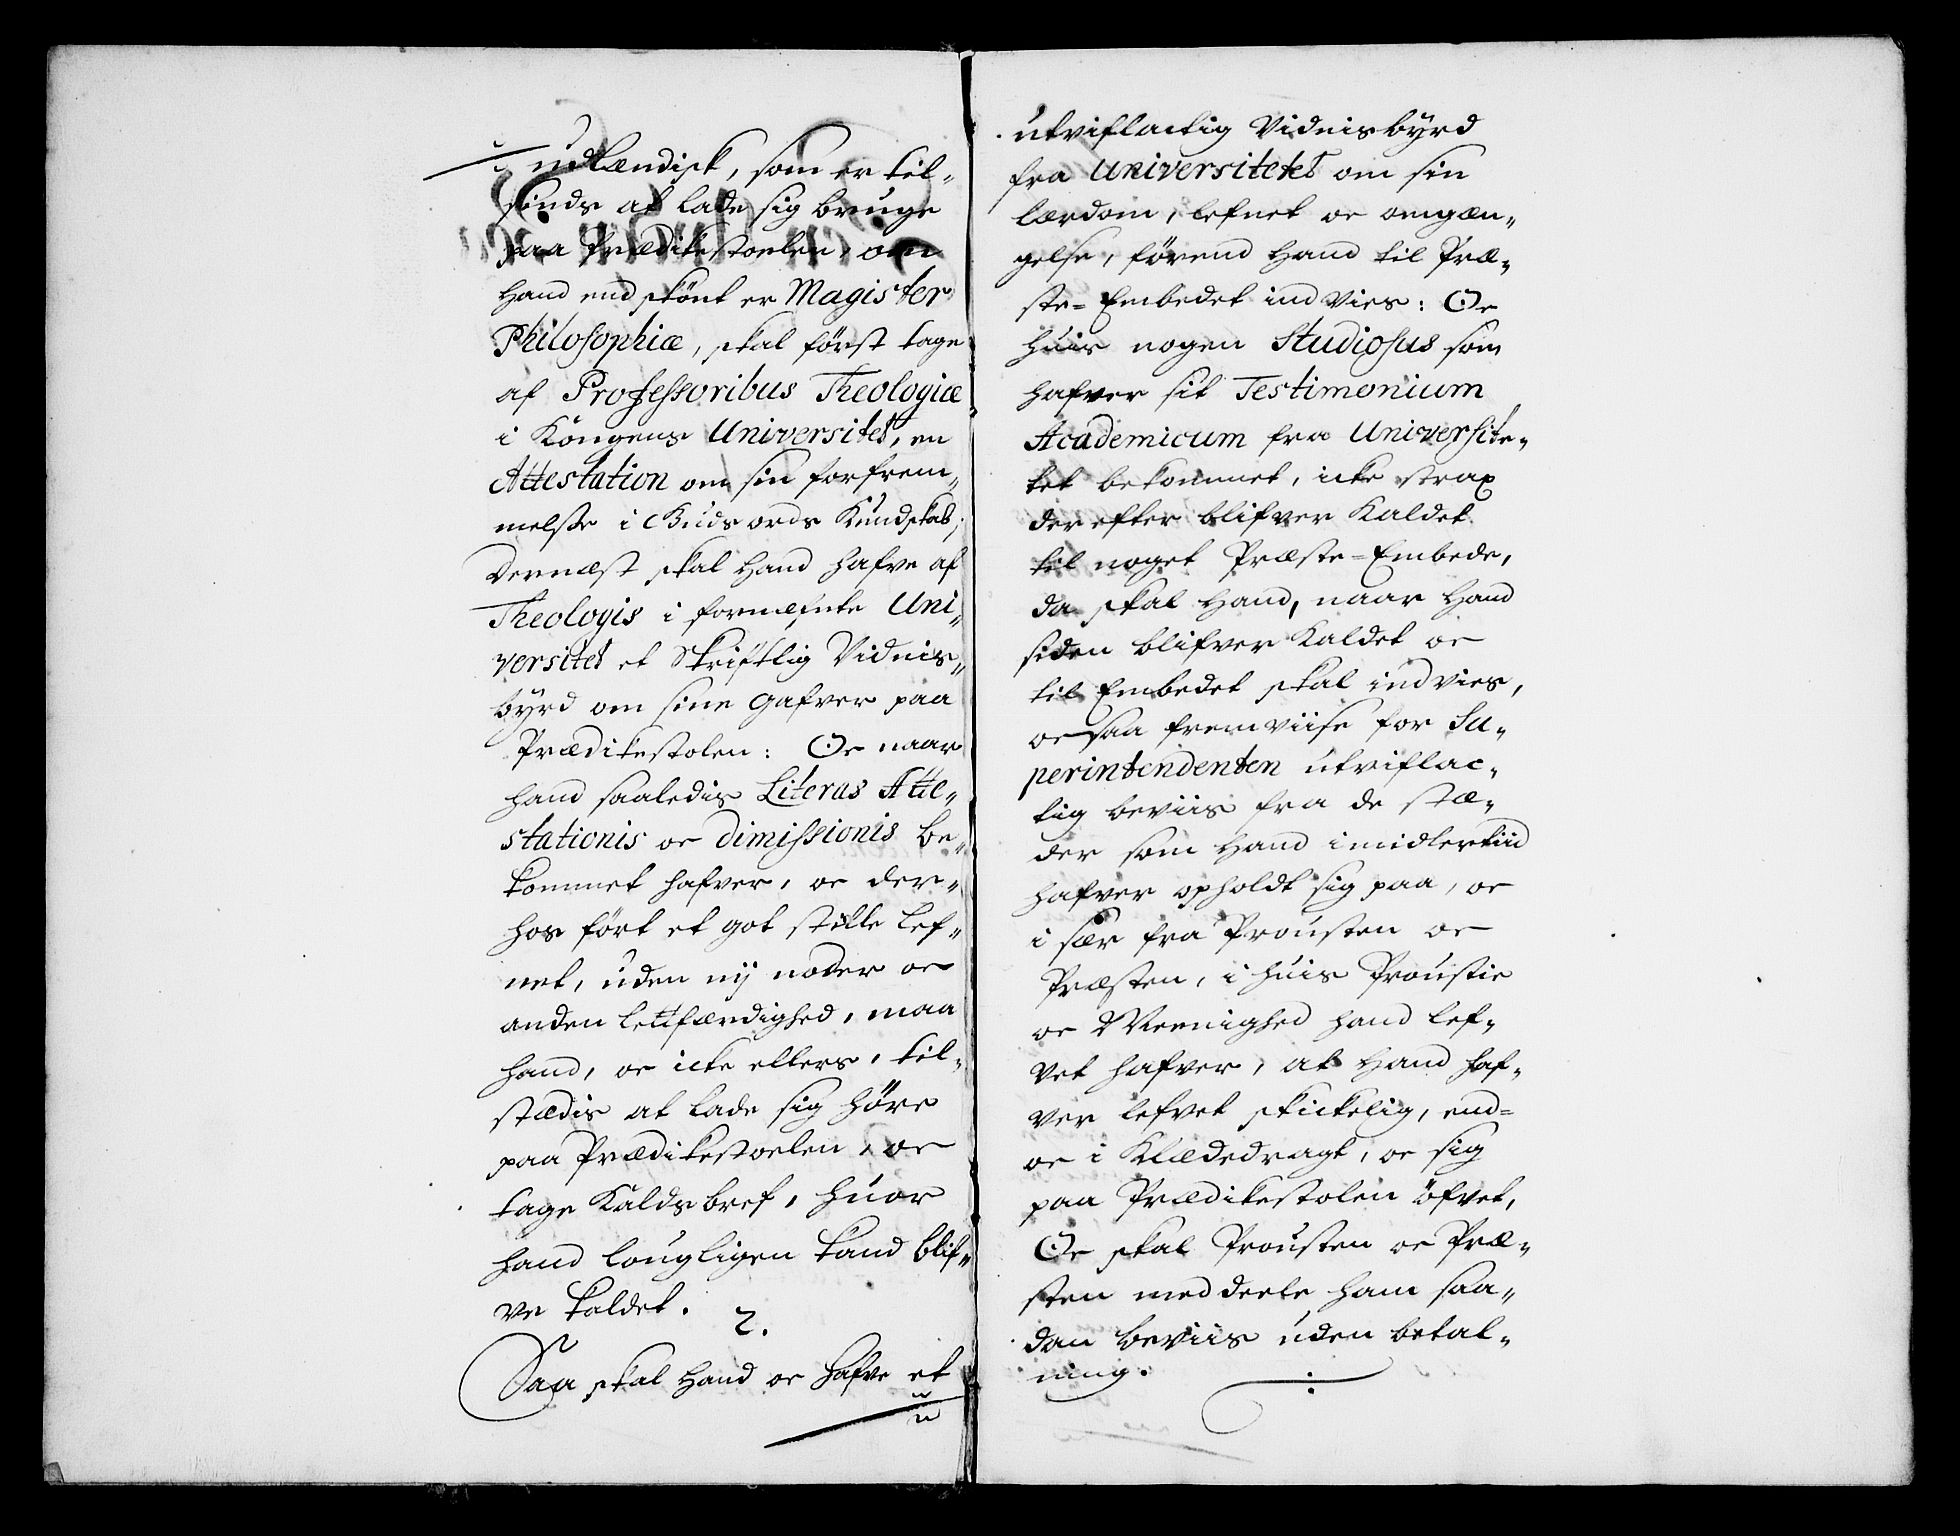 udlændisk, som er til-
sinds at lade sig bruge
paa Prædikestoelen, om
Hand end skönt er Magister
Philosophiæ, skal först tage
af Professoribus Theologiæ
i Kongens Universitet, en
Attestation om sin forfrem-
melse i Guds ords Kundskab;
Dernæst skal Hand hafve af
Theologis i formelte Uni-
versitet et Skriftlig Vidnis-
byrd om sine Gafver paa
Prædikestolen: Oc naar
hand saaledis Literas Atte-
stationis oc dimissionis be-
kommet hafver, oc der-
hos fört et got stille lef-
net, uden ny noder oc
anden lettfærdighed, maa
hand, oc icke ellers, til-
stædis at lade sig höre
paa Prædikestoelen, oc
tage Kaldsbref, huor
hand lougligen kand blif-
ve kaldet.
2.
Saa skal Hand oc hafve et
u
utviflactig Vidnisbyrd
fra Universitetet om sin
lærdom, lefnet oc omgæn-
gelse, förend Hand til Præ-
ste-Embedet ind Vies: Oc
huis nogen Studiosus som
hafver sit Testimonium
Academicum fra Universite-
tet bekommet, icke strax
der efter blifver Kaldet
til noget Præste-Embede,
da skal Hand, naar Hand
siden blifver Kaldet oc
til Embedet skal indvies,
oc saa fremviise for Su-
perintendenten utviflac-
tig beviis fra de stæ-
der som Hand imidlertiid
hafver opholdt sig paa, oc
i sær fra Prousten oc
Præsten, i huis Proustie
oc Meenighed hand lef-
vet hafver, at Hand haf-
ver lefvet skickelig, end-
oc i Klædedragt, oc sig
paa Prædikestolen öfvet,
Oc skal Prousten oc Præ-
sten meddeele ham saa-
dan beviis uden betal-
ning.